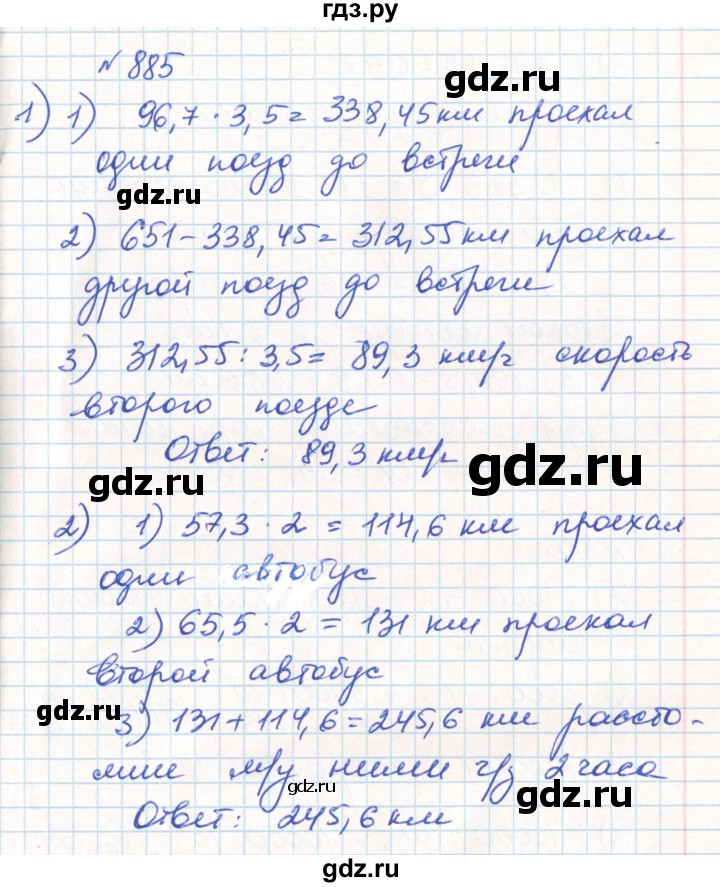 гдз.ру
№ 885
gdz.ru
1) 1) 96,7 · 3,5 = 338,45 км проехал
один поезд до встречи
gdz.ru
2) 651 - 338,45 = 312,55 км проехал
gdz.ru
другой поезд до встречи
3) 312,55 : 3,5 = 89,3 км/ч скорость
второго поезда
Ответ: 89,3 км/ч
gdz.ru
gdz.ru
2) 1) 57,3 · 2 = 114,6 км проехал
gdz.ru
один автобус
2) 65,5 · 2 = 131 км проехал
gdz.ru
второй автобус
gdz.ru
3) 131 + 114,6 = 245,6 км рассто-
яние м/у ними ч/з 2 часа
gdz.ru
gdz.ru
Ответ: 245,6 км
gdz.ru
gdz.ru